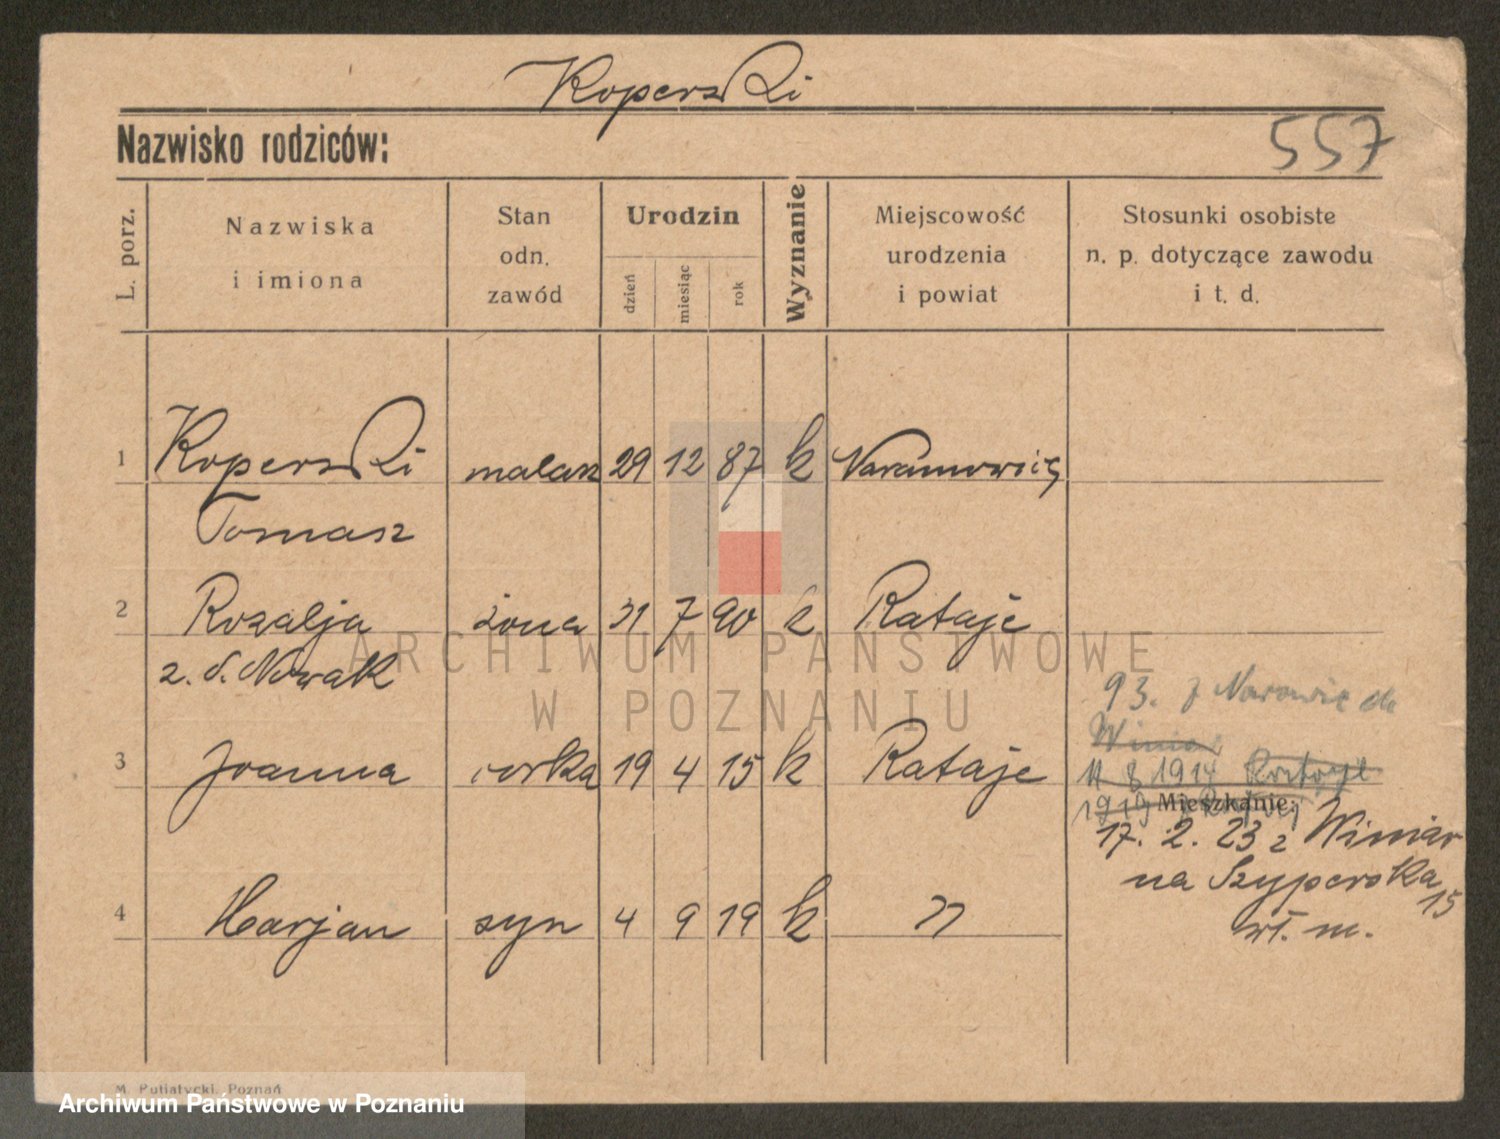 Koperski
Nazwisko rodziców:
557
L. porz.
Nazwiska
i imiona
Stan
odn.
zawód
Urodzin
dzień
miesiąc
rok
Wyznanie
Miejscowość
urodzenia
i powiat
Stosunki osobiste
n. p. dotyczące zawodu
i t. d.
1 Koperski malarz 29 12 87 k Naramowice
Tomasz
2 Rozalja żona 31 7 90 k Rataje
z. d. Nowak
3 Joanna córka 19 4 15 k Rataje
4 Marjan syn 4 9 19 k "
93. z do
Winiar
8 1914
1919
Mieszkanie:
17. 2. 23 z Winiar
na Szyperska
15
wł. m.
M. Putiatycki, Poznań
ARCHIWUM PAŃSTWOWE
W POZNANIU
Archiwum Państwowe w Poznaniu